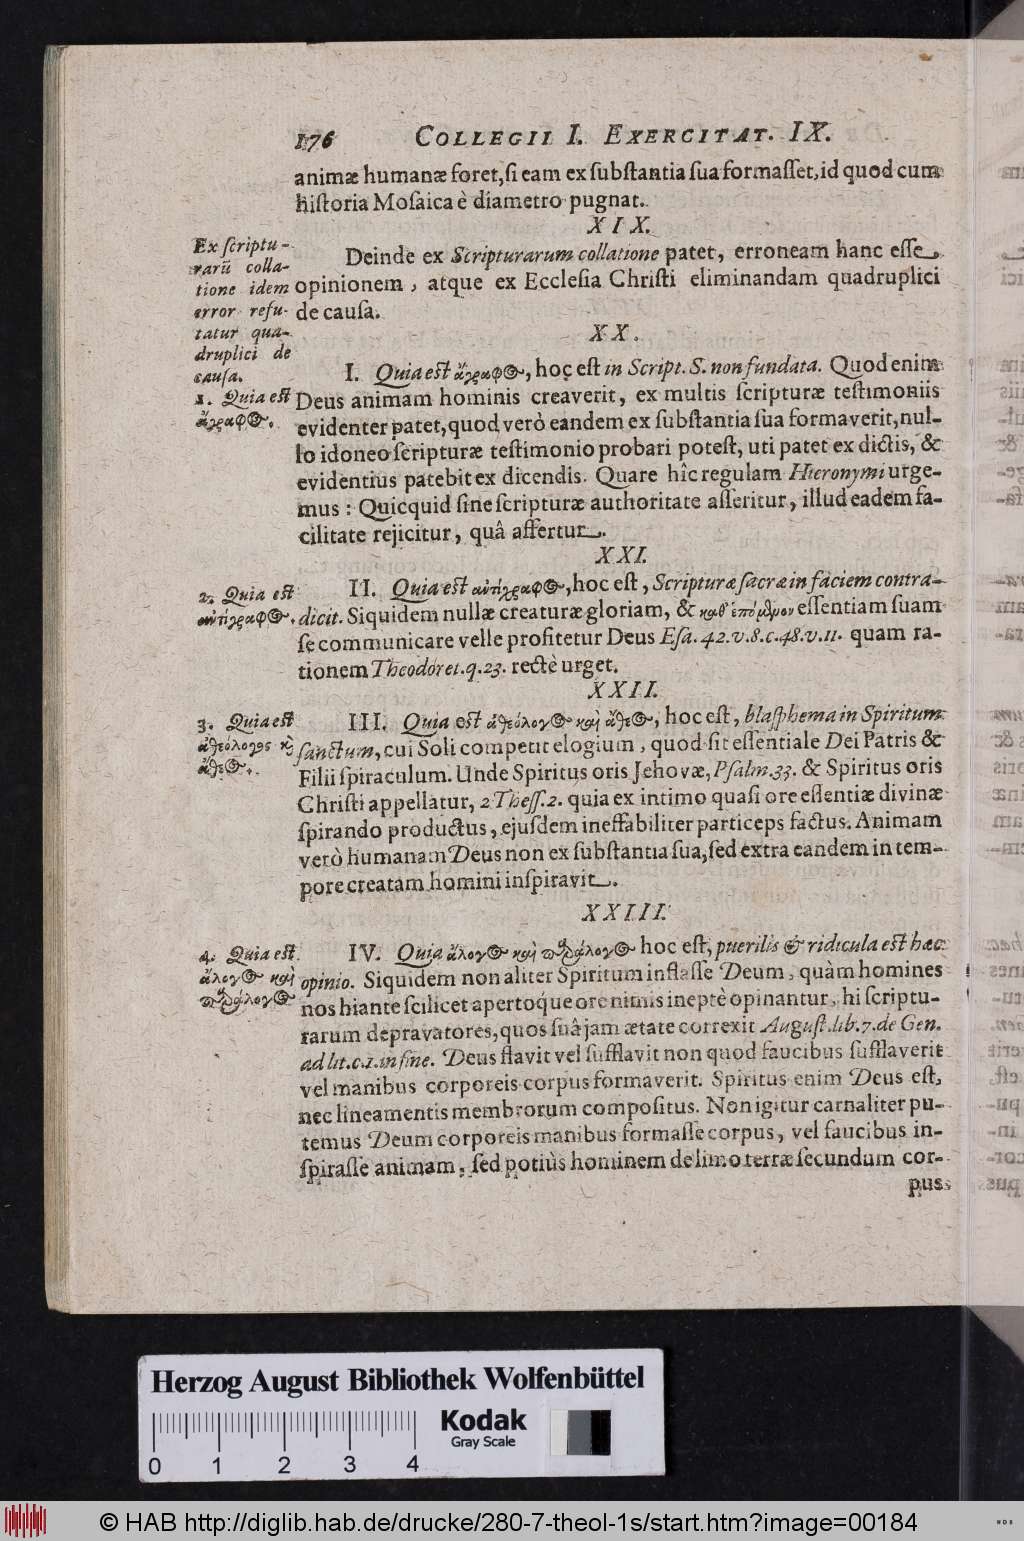 176 COLLEGII I. EXERCITAT. IX.
animæ humanæ foret, ſi eam ex ſubſtantia ſua formaſſet, id quod cum
hiſtoria Moſaica è diametro pugnat.
XIX.
Ex ſcriptu-
rarū colla-
tione idem
error refu-
tatur qua-
druplici de
cauſa.
Deinde ex Scripturarum collatione patet, erroneam hanc eſſe
opinionem, atque ex Eccleſia Chriſti eliminandam quadruplici
de cauſa.
XX.
1. Quia eſt
ἄγραφος.
I. Quia eſt ἄγραφος, hoc eſt in Script. S. non fundata. Quod enim
Deus animam hominis creaverit, ex multis ſcripturæ teſtimoniis
evidenter patet, quod verò eandem ex ſubſtantia ſua formaverit, nul-
lo idoneo ſcripturæ teſtimonio probari poteſt, uti patet ex dictis, &
evidentius patebit ex dicendis. Quare hîc regulam Hieronymi urge-
mus: Quicquid ſine ſcripturæ authoritate aſſeritur, illud eadem fa-
cilitate rejicitur, quâ affertur.
XXI.
2. Quia eſt
ἀντίγραφος.
II. Quia eſt ἀντίγραφος, hoc eſt, Scripturæ ſacræ in faciem contra-
dicit. Siquidem nullæ creaturæ gloriam, & καθ' ἑπόμενον eſſentiam ſuam
ſe communicare velle profitetur Deus Eſa. 42. v. 8. c. 48. v. 11. quam ra-
tionem Theodoret. q. 23. rectè urget.
XXII.
3. Quia eſt
ἀθεόλογος κὶ
ἄθεος.
III. Quia eſt ἀθεόλογος καὶ ἄθεος, hoc eſt, blaſphema in Spiritum
ſanctum, cui Soli competit elogium, quod ſit eſſentiale Dei Patris &
Filii ſpiraculum. Unde Spiritus oris Jehovæ, Pſalm. 33. & Spiritus oris
Chriſti appellatur, 2 Theſſ. 2. quia ex intimo quaſi ore eſſentiæ divinæ
ſpirando productus, ejuſdem ineffabiliter particeps factus. Animam
verò humanam Deus non ex ſubſtantia ſua, ſed extra eandem in tem-
pore creatam homini inſpiravit.
XXIII.
4. Quia eſt
ἄλογος καὶ
παράλογος
IV. Quia ἄλογος καὶ παράλογος hoc eſt, puerilis & ridicula eſt hæc
opinio. Siquidem non aliter Spiritum inflaſſe Deum, quàm homines
nos hiante ſcilicet apertoq́ue ore nimis ineptè opinantur, hi ſcriptu-
rarum depravatores, quos ſuâ jam ætate correxit Auguſt. lib. 7. de Gen.
ad lit. c. 1. in fine. Deus flavit vel ſufflavit non quod faucibus ſufflaverit
vel manibus corporeis corpus formaverit. Spiritus enim Deus eſt,
nec lineamentis membrorum compoſitus. Non igitur carnaliter pu-
temus Deum corporeis manibus formaſſe corpus, vel faucibus in-
ſpiraſſe animam, ſed potiùs hominem de limo terræ ſecundum cor-
pus
Herzog August Bibliothek Wolfenbüttel
Kodak
Gray Scale
0 1 2 3 4
© HAB http://diglib.hab.de/drucke/280-7-theol-1s/start.htm?image=00184